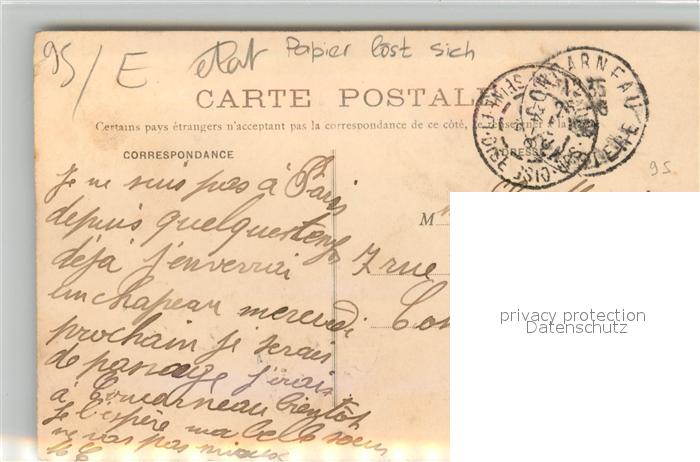 95/E etat Papier löst sich
CARTE POSTALE
Certains pays étrangers n'acceptent pas la correspondance de ce côté, se renseigner à la
CORRESPONDANCE
ADRESSE
95
Je ne suis pas à Paris
depuis quelques temps
déjà j'enverrai
un chapeau mercredi
prochain je serai
de passage j'irai
à Concarneau bientôt
je l'espère ma belle soeur
ne vas pas mieux
M
7 rue
privacy protection
Datenschutz